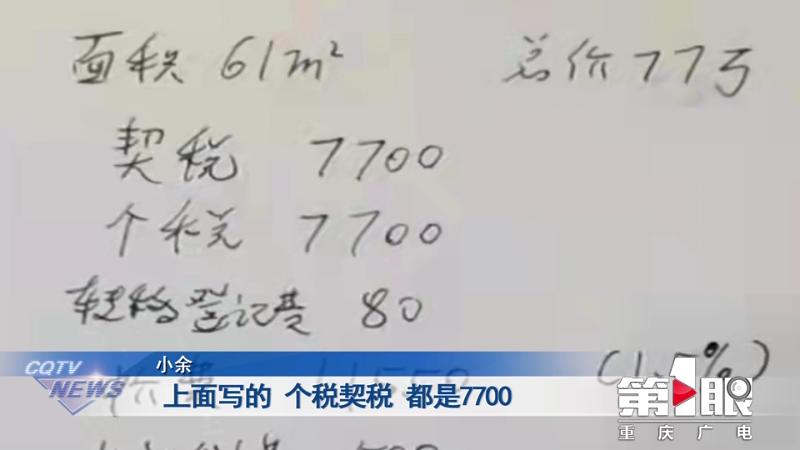 面积 61m² 总价77万
契税 7700
个税 7700
转移登记费 80
(1.5%)
CQTV NEWS
小余
上面写的 个税契税 都是7700
第1眼
重庆广电